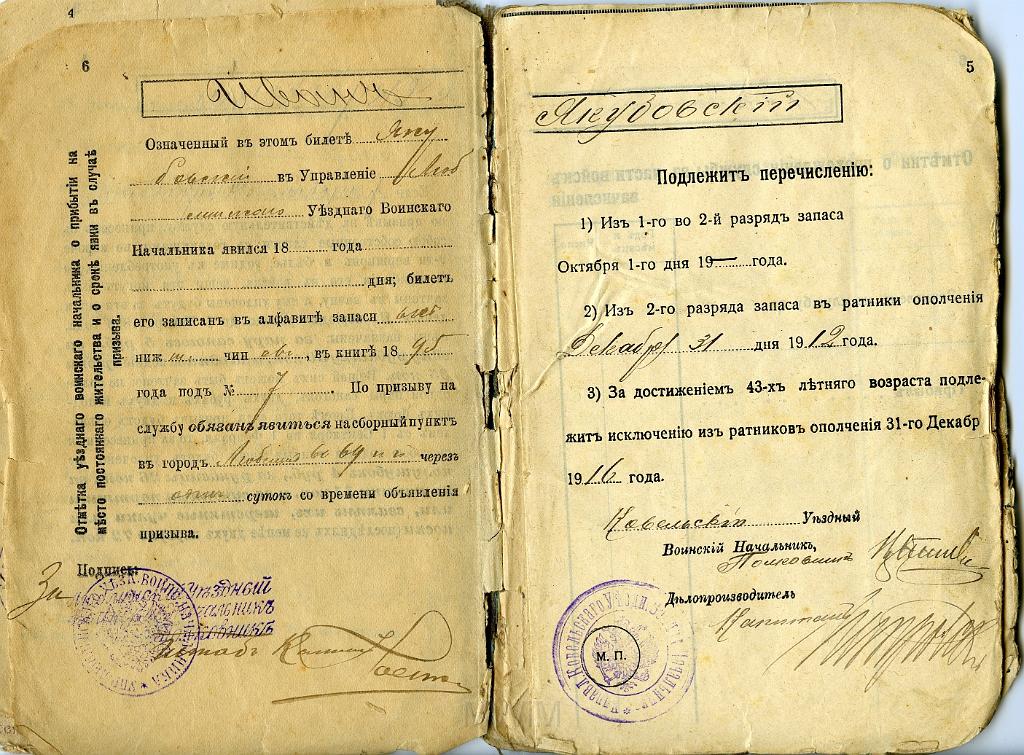 4
6
Иванъ
Отмѣтка уѣзднаго воинскаго начальника о прибытіи на
мѣсто постояннаго жительства и о срокѣ явки въ случаѣ
призыва.
Означенный въ этомъ билетѣ Яку
бовскій въ Управленіе Люб
линскаго Уѣзднаго Воинскаго
Начальника явился 18 года
дня; билетъ
его записанъ въ алфавитѣ запасн
ниж чин , въ книгѣ 18 95
года подъ № 7 . По призыву на
службу обязанъ явиться на сборный пунктъ
въ городъ черезъ
сутокъ со времени объявленія
призыва.
Подпись:
За
Уѣздный
5
Якубовскій
Подлежитъ перечисленію:
1) Изъ 1-го во 2-й разрядъ запаса
Октября 1-го дня 19— года.
2) Изъ 2-го разряда запаса въ ратники ополченія
Декабря 31 дня 1912 года.
3) За достиженіемъ 43-хъ лѣтняго возраста подле-
житъ исключенію изъ ратниковъ ополченія 31-го Декабр
1916 года.
Ковельскій Уѣздный
Воинскій Начальникъ,
Полковникъ
Дѣлопроизводитель
Капитанъ
М. П.